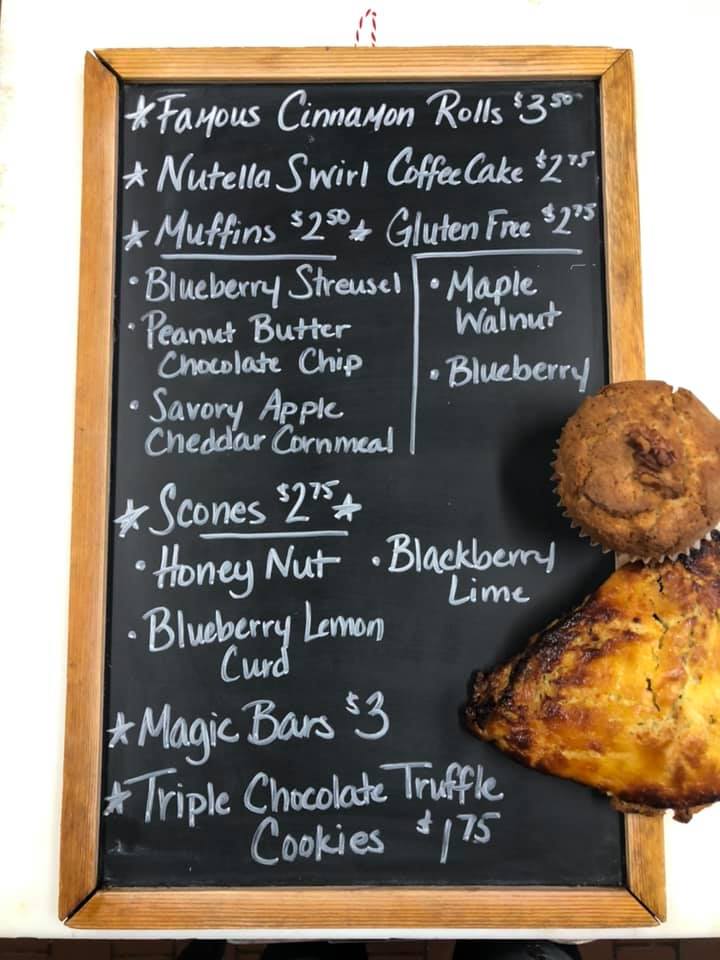 ★Famous Cinnamon Rolls $3⁵⁰
★ Nutella Swirl Coffee Cake $2⁷⁵
★ Muffins $2⁵⁰ ★ Gluten Free $2⁷⁵
• Blueberry Streusel
• Peanut Butter
Chocolate Chip
• Savory Apple
Cheddar Cornmeal
• Maple
Walnut
• Blueberry
★ Scones $2⁷⁵ ★
• Honey Nut
• Blackberry
Lime
• Blueberry Lemon
Curd
★ Magic Bars $3
★ Triple Chocolate Truffle
Cookies $1⁷⁵